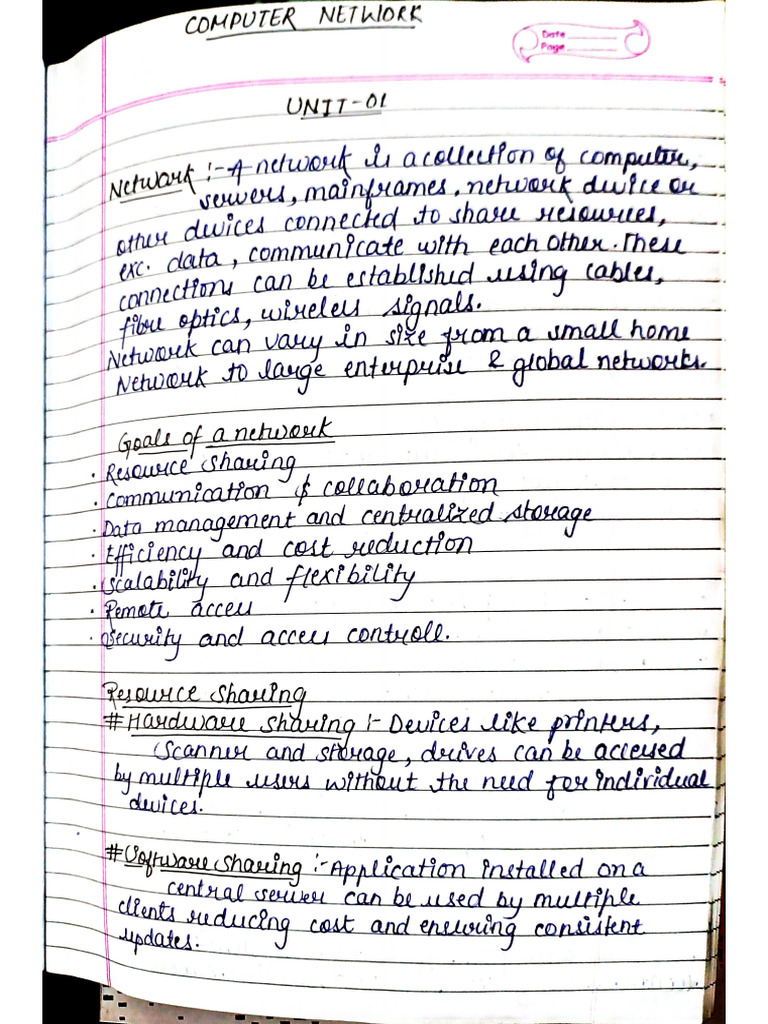 COMPUTER NETWORK
Date
Page
UNIT-01
Network :- A network is a collection of computer,
servers, mainframes, network device or
other devices connected to share resources,
exc. data, communicate with each other. These
connections can be established using cables,
fibre optics, wireless signals.
Network can vary in size from a small home
Network to large enterprise & global networks.
Goals of a network
· Resource sharing
· Communication & collaboration
· Data management and centralized storage
· Efficiency and cost reduction
· Scalability and flexibility
· Remote access
· Security and access controll.
Resource sharing
# Hardware sharing :- Devices like printers,
Scanner and storage, drives can be accessed
by multiple users without the need for individual
devices.
# Software sharing :- Application installed on a
central server can be used by multiple
clients reducing cost and ensuring consistent
updates.